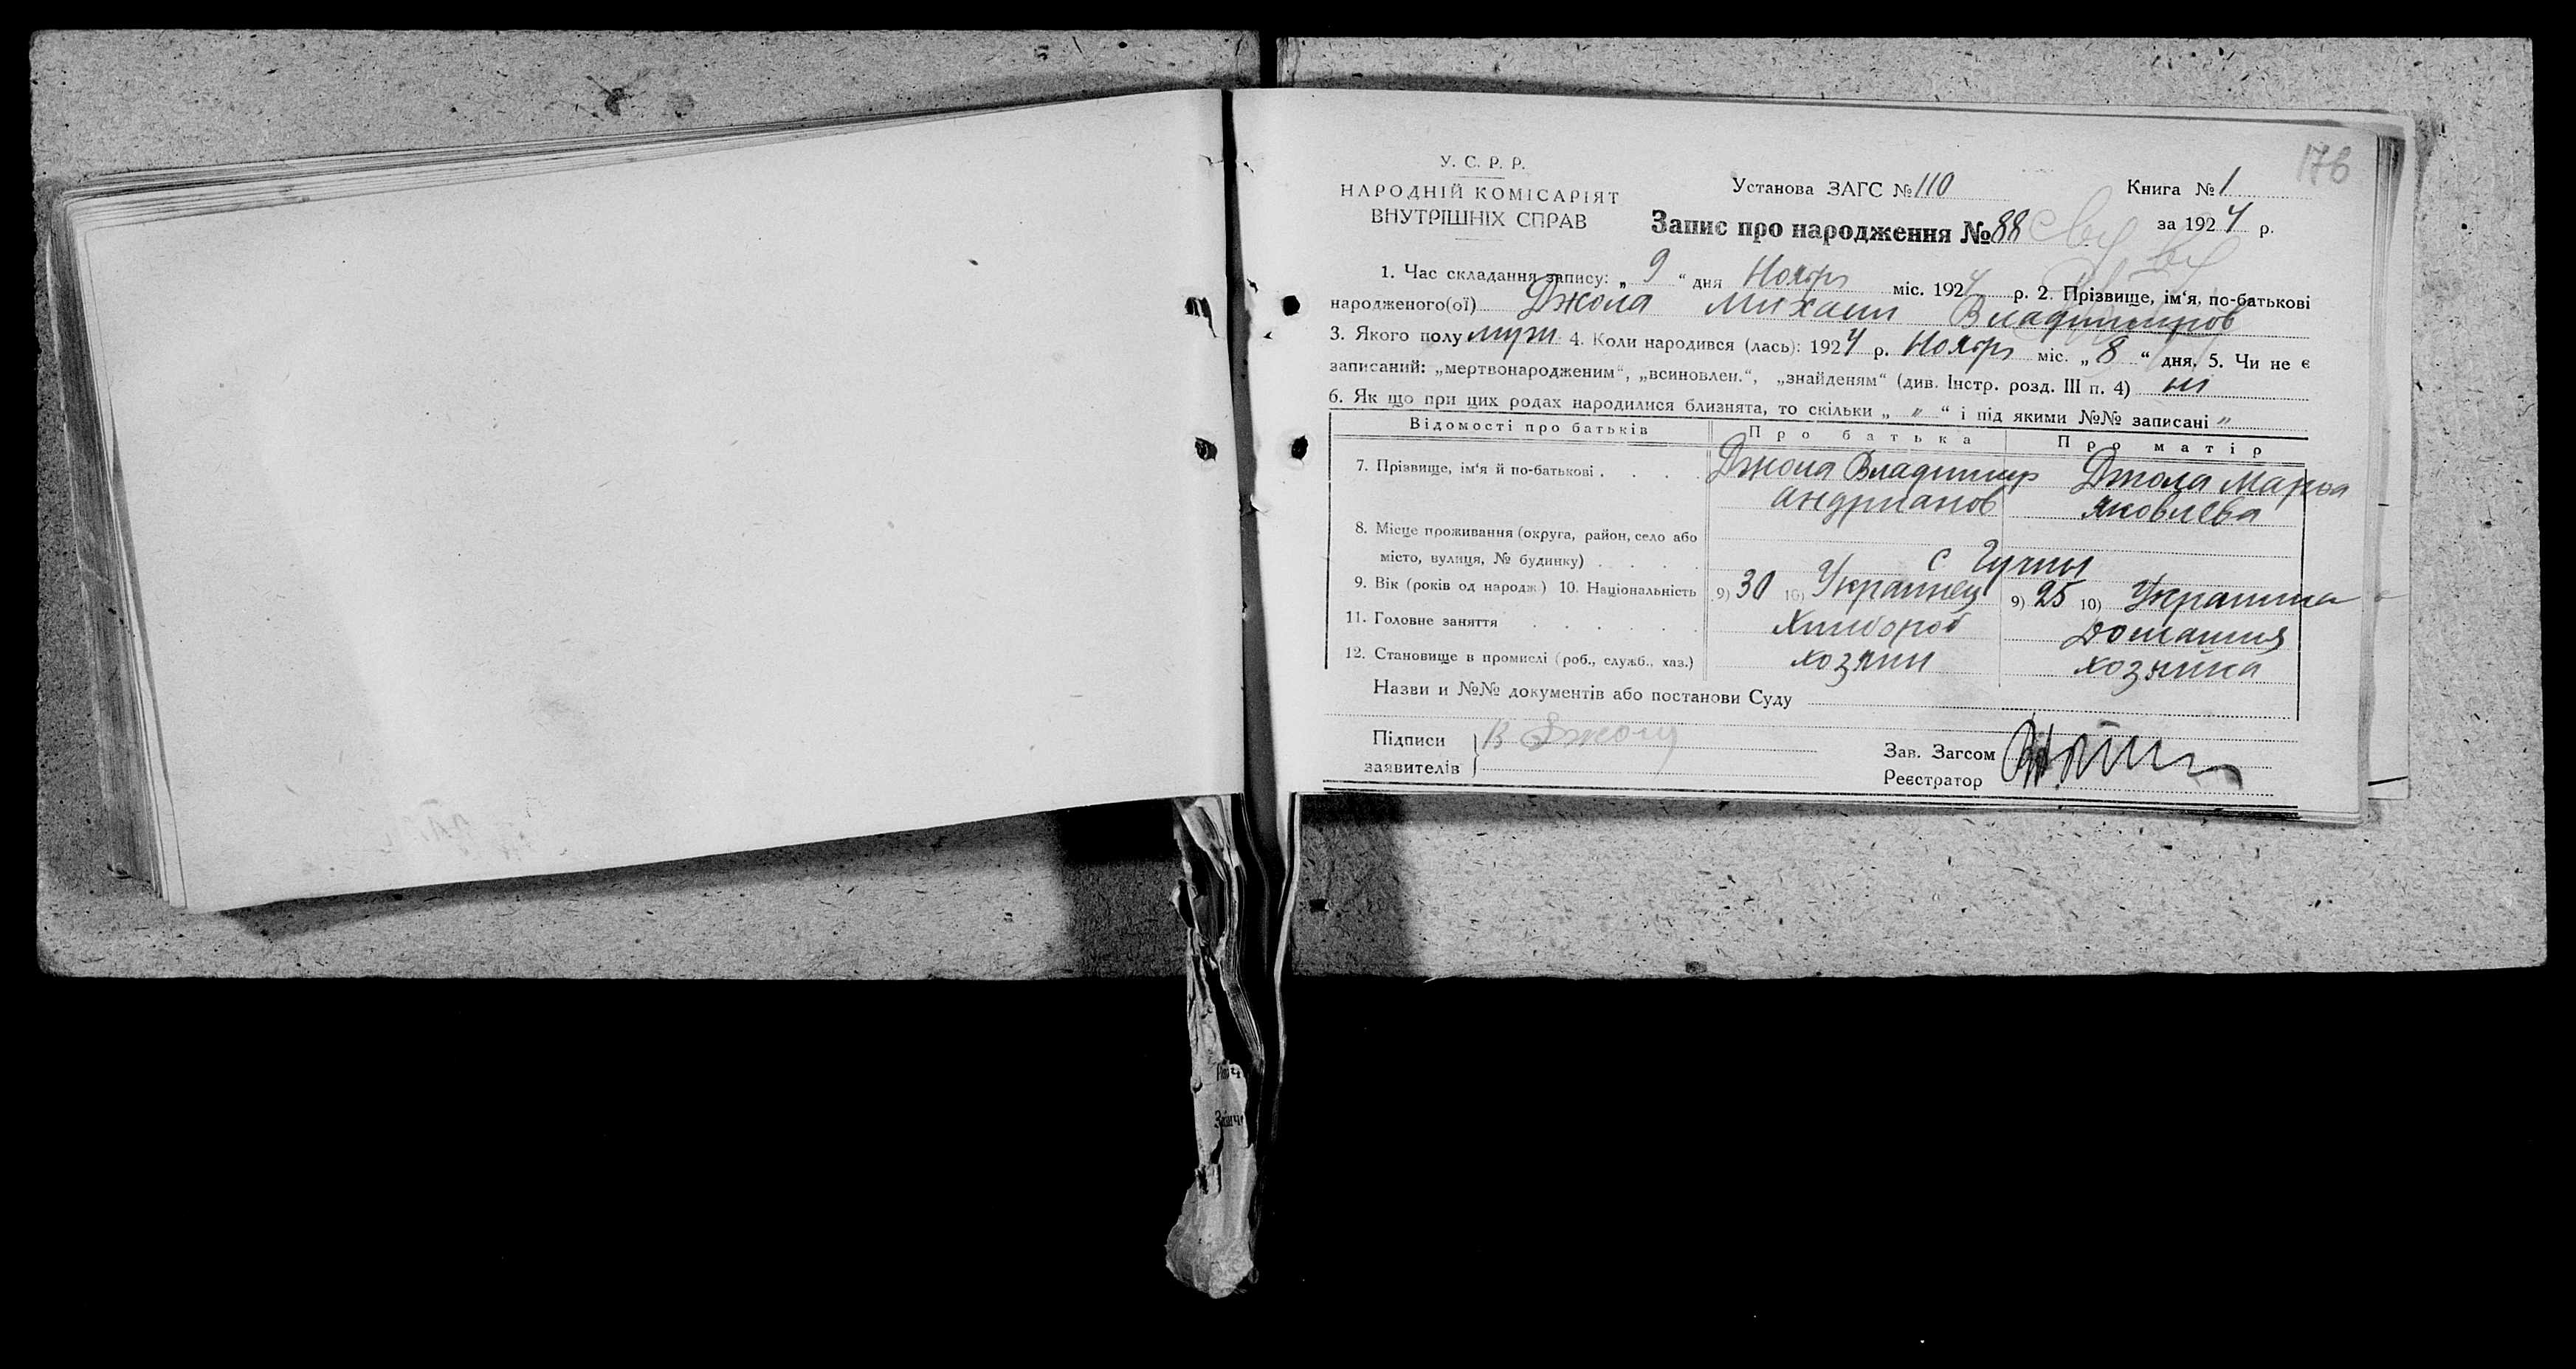 176
У. С. Р. Р.
НАРОДНІЙ КОМІСАРІЯТ
ВНУТРІШНІХ СПРАВ
Установа ЗАГС № 110
Книга № 1
Запис про народження № 88
за 1924 р.
1. Час складання запису: „ 9 “ дня Ноябр міс. 1924 р. 2. Прізвище, ім‘я, по-батькові
народженого(ої) Джола Михаил Владимиров
3. Якого полу муж 4. Коли народився (лась): 1924 р. Ноябр міс. „ 8 “ дня. 5. Чи не є
записаний: „мертвонародженим“, „всиновлен.“, „знайденям“ (див. Інстр. розд. III п. 4)
6. Як що при цих родах народилися близнята, то скільки „ " “ і під якими №№ записані "
Відомості про батьків Про батька Про матір
7. Прізвище, ім‘я й по-батькові . . . . Джола Владимир Джола Марья
андрианов яковлева
8. Місце проживання (округа, район, село або
місто, вулиця, № будинку) . . . . с Гучны
9. Вік (років од народж) 10. Національність 9) 30 10) Украинец 9) 25 10) Украинка
11. Головне заняття . . . . . . Хлібороб Домашня
12. Становище в промислі (роб., служб., хаз.) хозяин хозяйка
Назви и №№ документів або постанови Суду
Підписи В Джола
заявителів
Зав. Загсом
Реєстратор